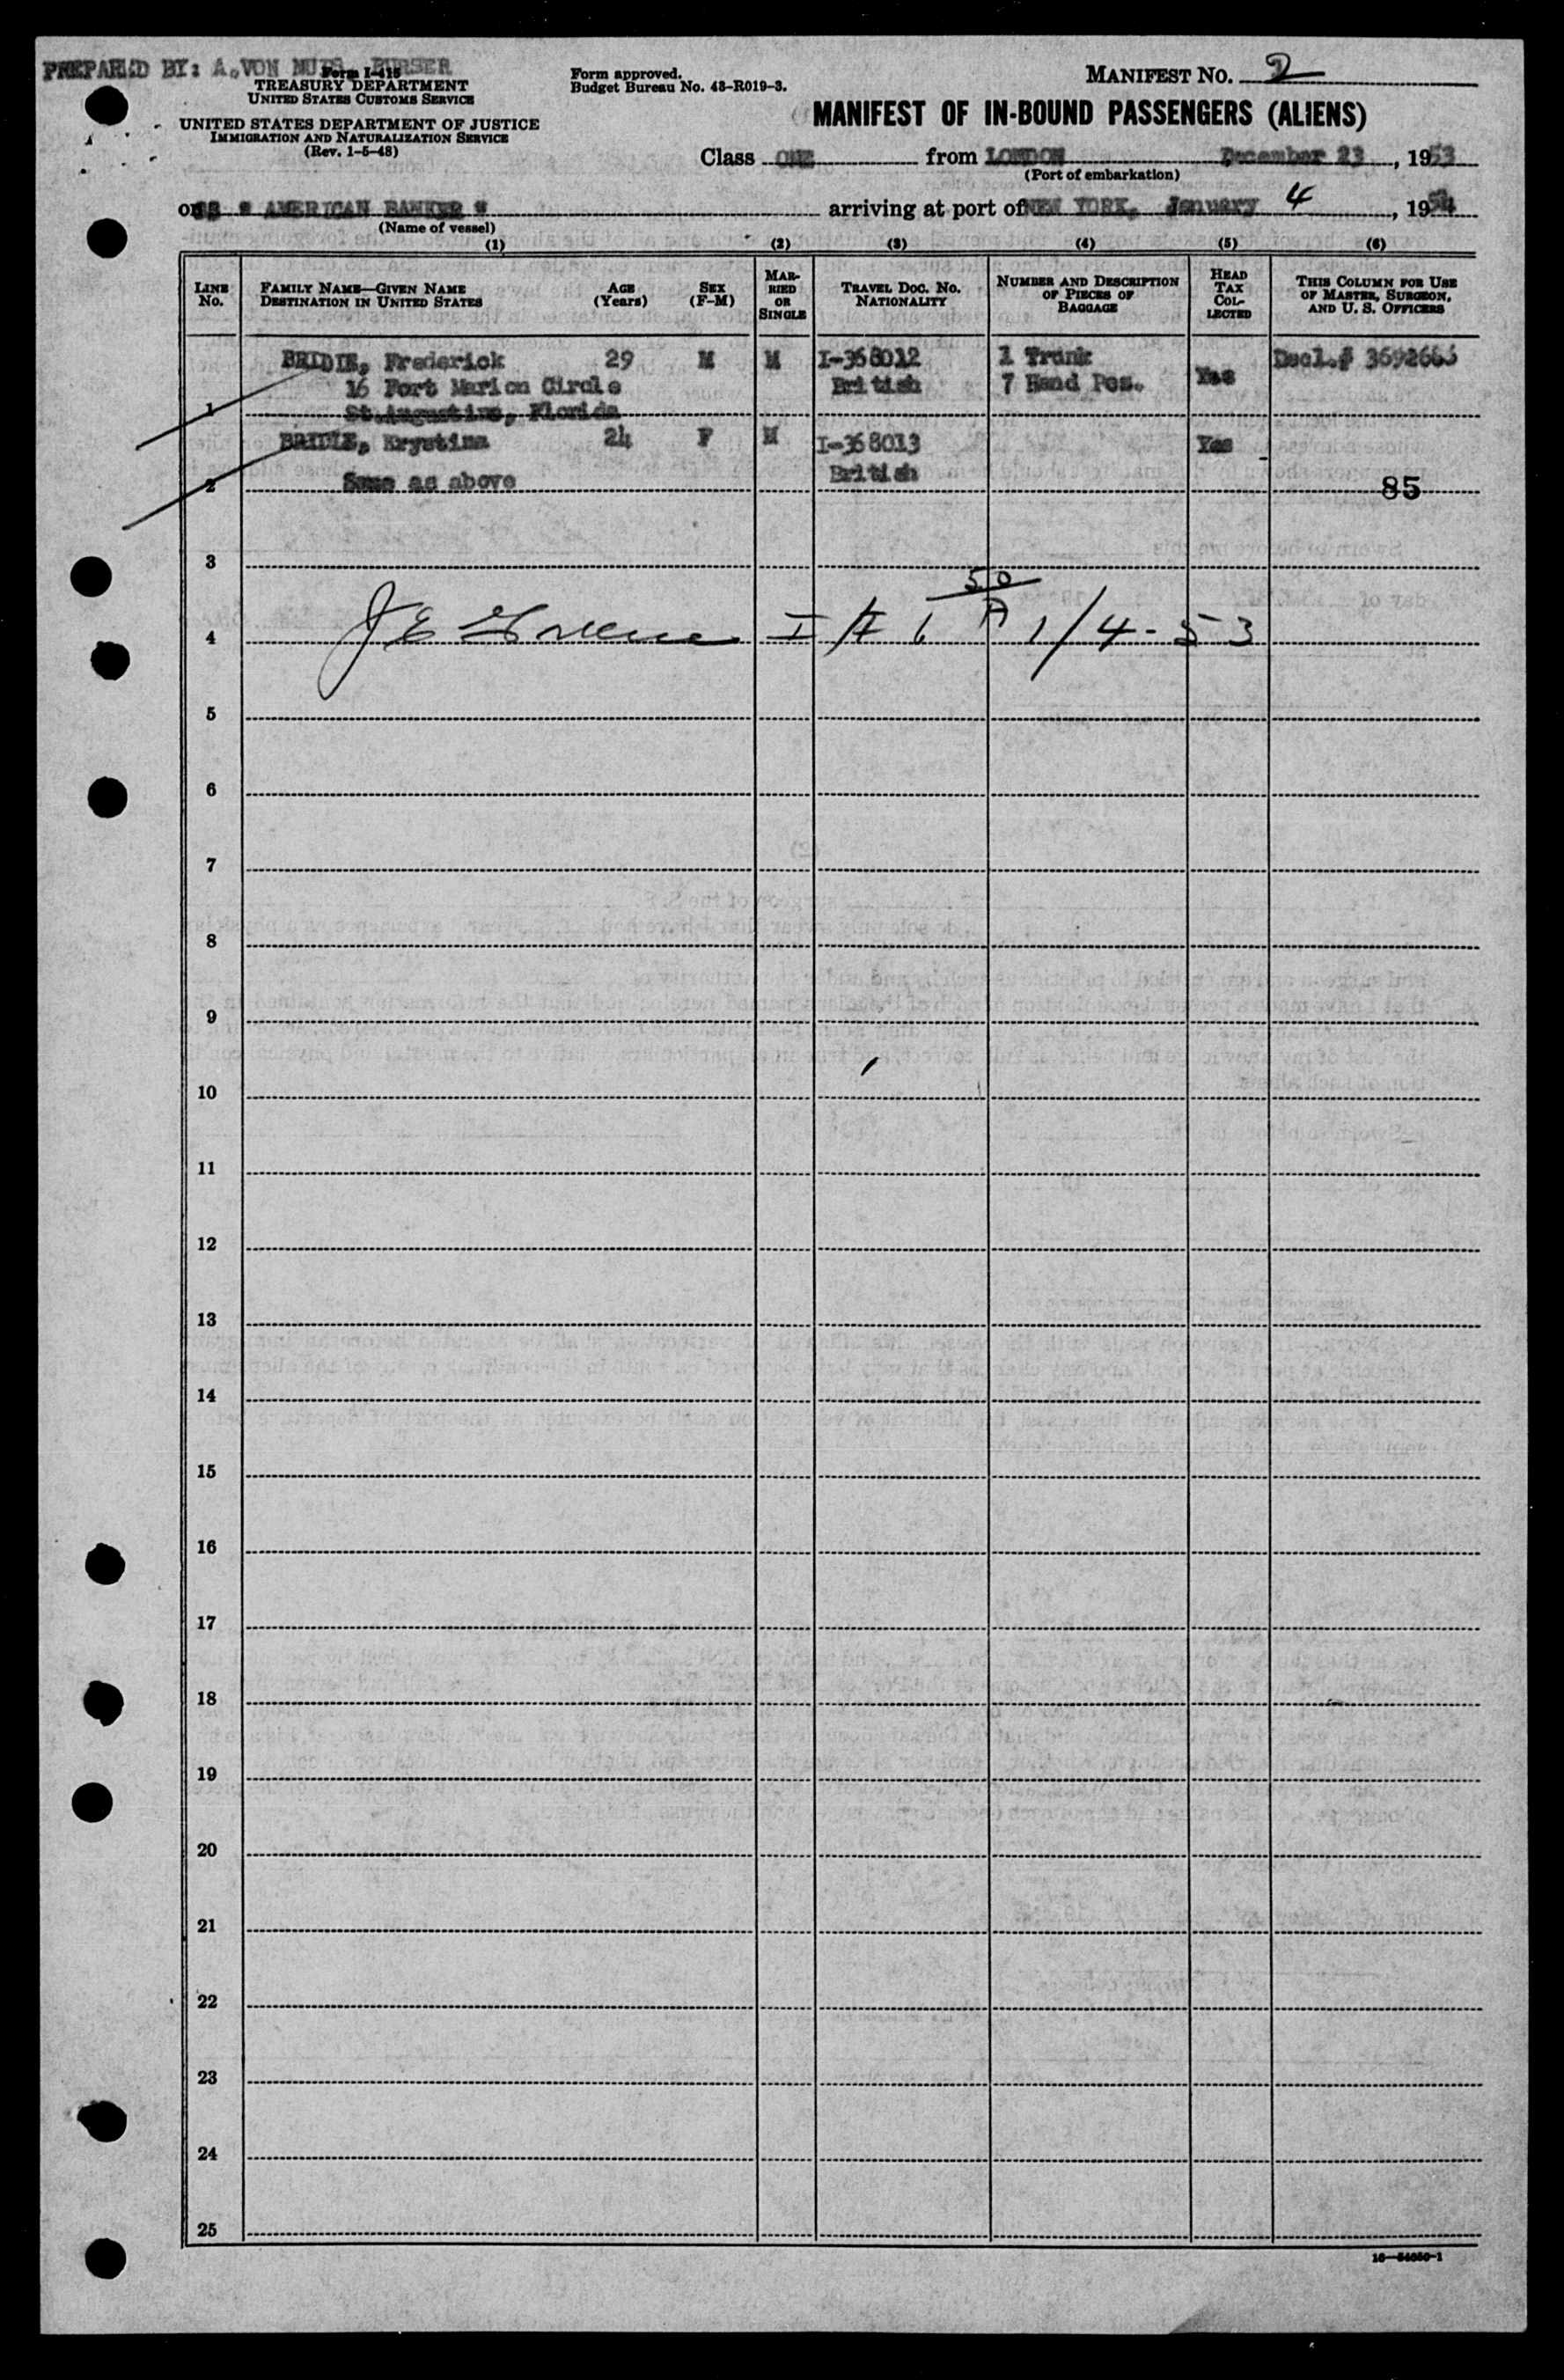 PREPARED BY: A. VON PURSER
Form I-415
TREASURY DEPARTMENT
UNITED STATES CUSTOMS SERVICE
UNITED STATES DEPARTMENT OF JUSTICE
IMMIGRATION AND NATURALIZATION SERVICE
(Rev. 1-5-48)
Form approved.
Budget Bureau No. 43-R019-3.
MANIFEST NO. 2
MANIFEST OF IN-BOUND PASSENGERS (ALIENS)
Class ONE from LONDON December 23, 1953
(Port of embarkation)
on SS " AMERICAN BANKER " arriving at port of NEW YORK, January 4, 1954
(Name of vessel)
(1) (2) (3) (4) (5) (6)
LINE No.
FAMILY NAME—GIVEN NAME
DESTINATION IN UNITED STATES
AGE (Years)
SEX (F-M)
MARRIED OR SINGLE
TRAVEL DOC. NO.
NATIONALITY
NUMBER AND DESCRIPTION OF PIECES OF BAGGAGE
HEAD TAX COLLECTED
THIS COLUMN FOR USE OF MASTER, SURGEON, AND U. S. OFFICERS
BRIDIE, Frederick 29 M M I-368012 1 Trunk Yes Decl.# 3692663
16 Fort Marion Circle British 7 Hand Pcs.
1 St.Augustine, Florida
BRIDIE, Krystina 24 F M I-368013 Yes
British
2 Same as above 85
3
50
4 J E Greene I # 6 A 1/4-53
5
6
7
8
9
10
11
12
13
14
15
16
17
18
19
20
21
22
23
24
25
16—54050-1